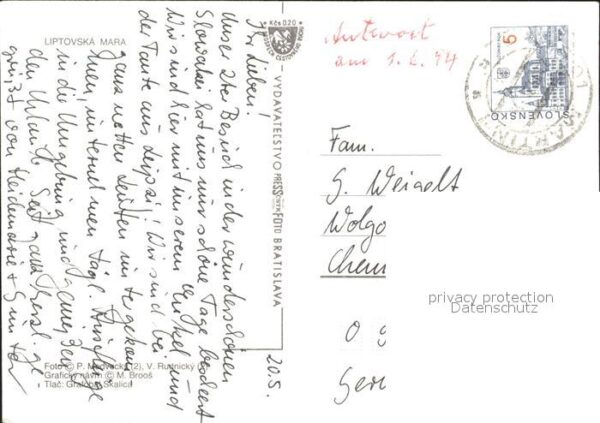 LIPTOVSKÁ MARA
20.5.
Ihr Lieben!
Unser 2te Besuch in der wunderschönen
Slowakei hat uns nur schöne Tage beschert
Wir sind hier mit unserem Enkel und
der Tante aus Leipzig! Wir sind bei
ganz netten Leuten untergekom-
men, unternehmen tägl. Ausflüge
in die Umgebung und genießen
den Urlaub. Seid ganz herzl. ge-
grüßt von Heidmarie + Günter
Foto © P. Medvecký (2), V. Rudnický
Grafický návrh © M. Brooš
Tlač: Grafobal Skalica
Kčs 0,20
VYDAVATEĽSTVO PRESSFOTO BRATISLAVA
Antwort
am 1.6.94
5
SLOVENSKO
MARTIN
Fam.
G. Weigelt
Wolgo
Chem
privacy protection
Datenschutz
O g
Ger